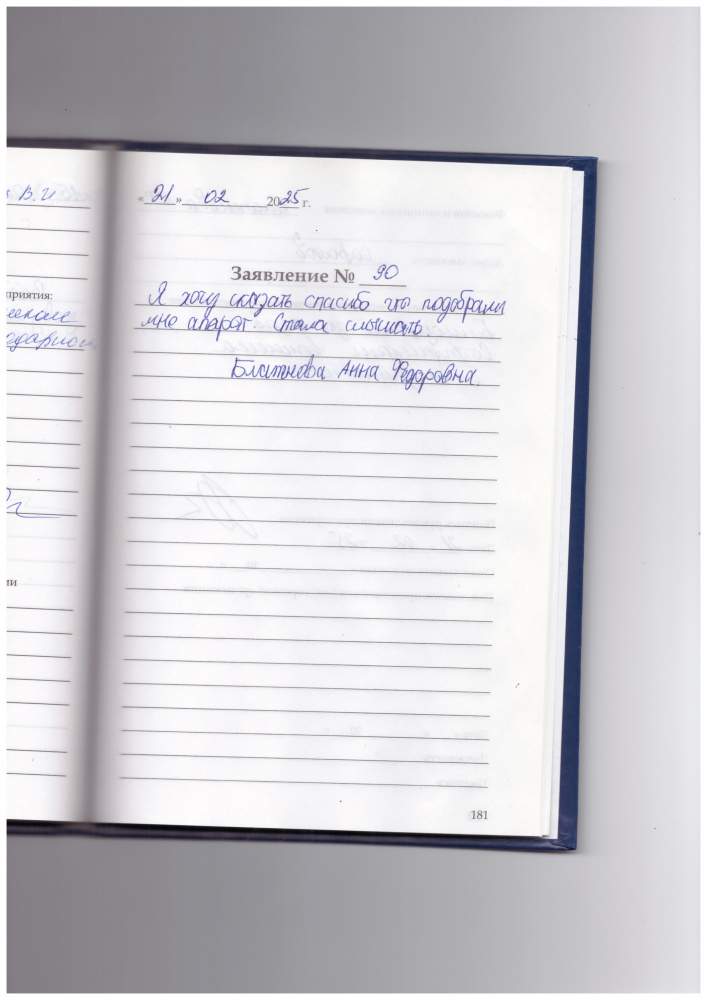 В.И
приятия:
ии
«21» 02 2025 г.
Заявление № 90
Я хочу сказать спасибо что подобрали
мне апарат. Стала слышать.
Анна Федоровна.
181